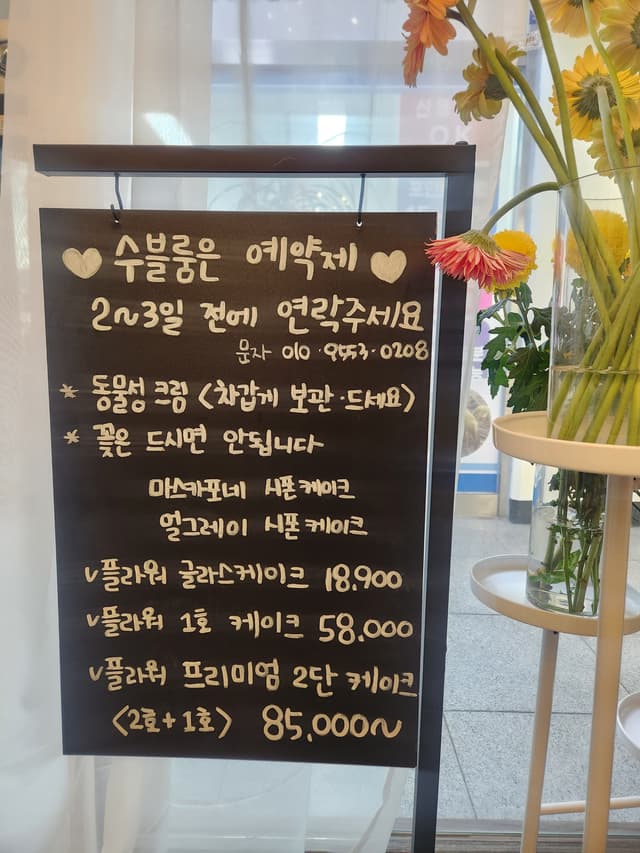 수블룸은 예약제
2~3일 전에 연락주세요
문자 010·9553·0208
* 동물성 크림 <차갑게 보관·드세요>
* 꽃은 드시면 안됩니다
마스카포네 시폰케이크
얼그레이 시폰케이크
v플라워 글라스케이크 18.900
v플라워 1호 케이크 58.000
v플라워 프리미엄 2단 케이크
<2호+1호> 85.000~